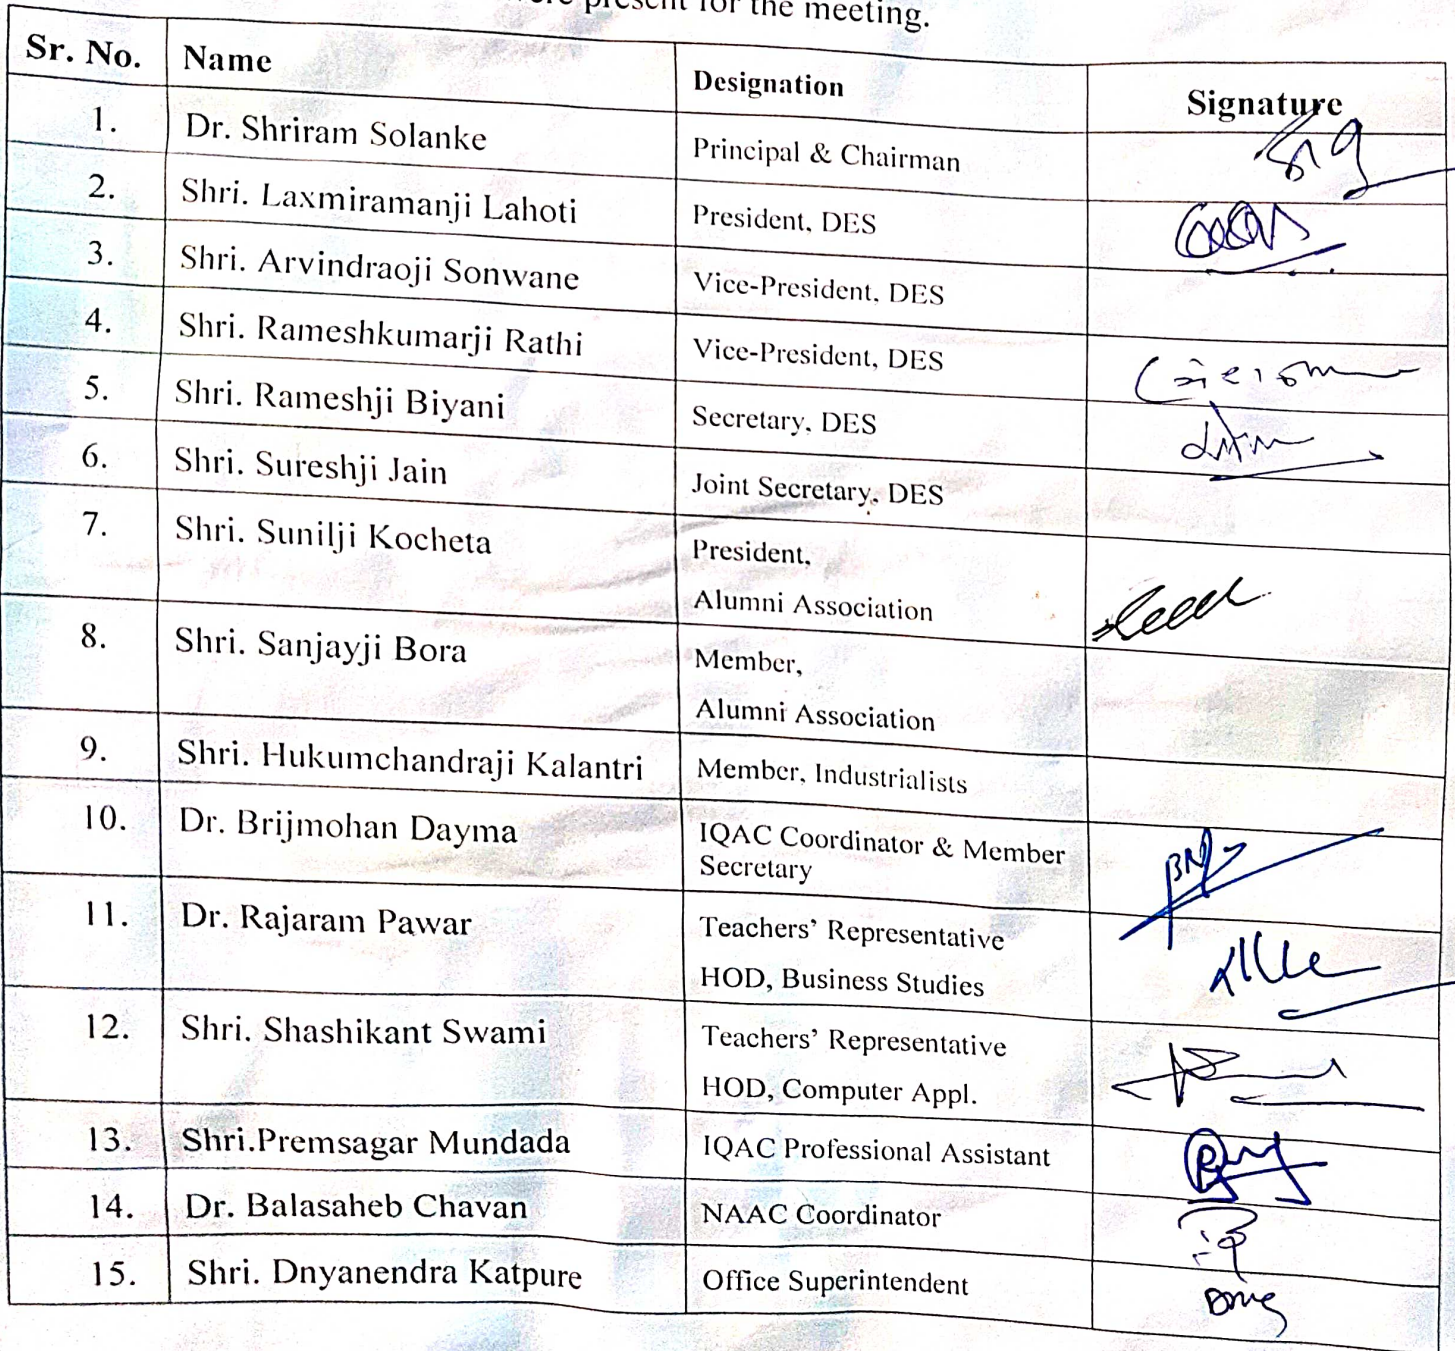 present for the meeting.
Sr. No. Name Designation Signature
1. Dr. Shriram Solanke Principal & Chairman
2. Shri. Laxmiramanji Lahoti President, DES
3. Shri. Arvindraoji Sonwane Vice-President, DES
4. Shri. Rameshkumarji Rathi Vice-President, DES
5. Shri. Rameshji Biyani Secretary, DES
6. Shri. Sureshji Jain Joint Secretary, DES
7. Shri. Sunilji Kocheta President,
Alumni Association
8. Shri. Sanjayji Bora Member,
Alumni Association
9. Shri. Hukumchandraji Kalantri Member, Industrialists
10. Dr. Brijmohan Dayma IQAC Coordinator & Member
Secretary
11. Dr. Rajaram Pawar Teachers' Representative
HOD, Business Studies
12. Shri. Shashikant Swami Teachers' Representative
HOD, Computer Appl.
13. Shri.Premsagar Mundada IQAC Professional Assistant
14. Dr. Balasaheb Chavan NAAC Coordinator
15. Shri. Dnyanendra Katpure Office Superintendent